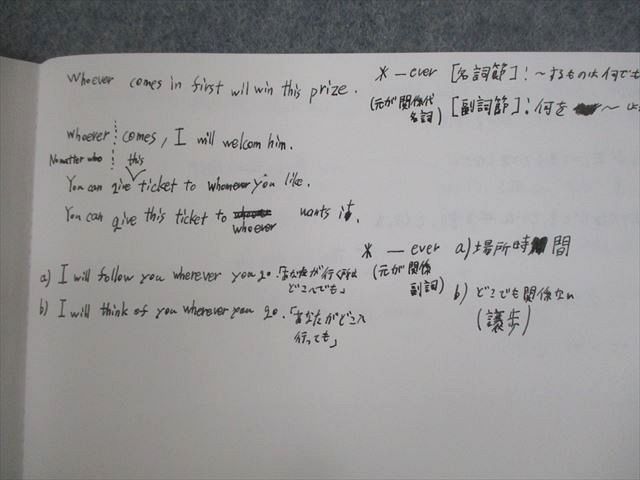 Whoever comes in first wil win this prize.
* ―ever [名詞節]:～するものは何でも
(元が関係代名詞)
[副詞節]:何を ～
Whoever comes, I will welcom him.
No matter who
this
You can give ticket to whomever you like.
You can give this ticket to whoever wants it.
* ―ever a)場所時間
(元が関係副詞)
b)どこでも関係ない
(譲歩)
a) I will follow you wherever you go.「あなたが行く所はどこへでも」
b) I will think of you wherever you go.「あなたがどこへ行っても」